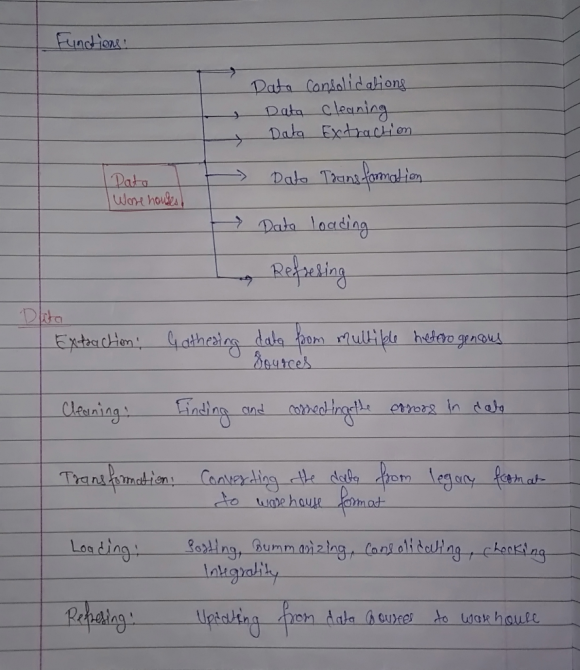 Functions:
Data Consolidations
Data Cleaning
Data Extraction
Data
Warehouse
Data Transformation
Data loading
Refresing
Data
Extraction: Gathering data from multiple heterogenous
Sources
Cleaning: Finding and correcting the errors in data
Transformation: Converting the data from legacy format
to warehouse format
Loading: Sorting, Summarizing, Consolidating, checking
Integrality
Refresing: Updating from data sources to warehouse